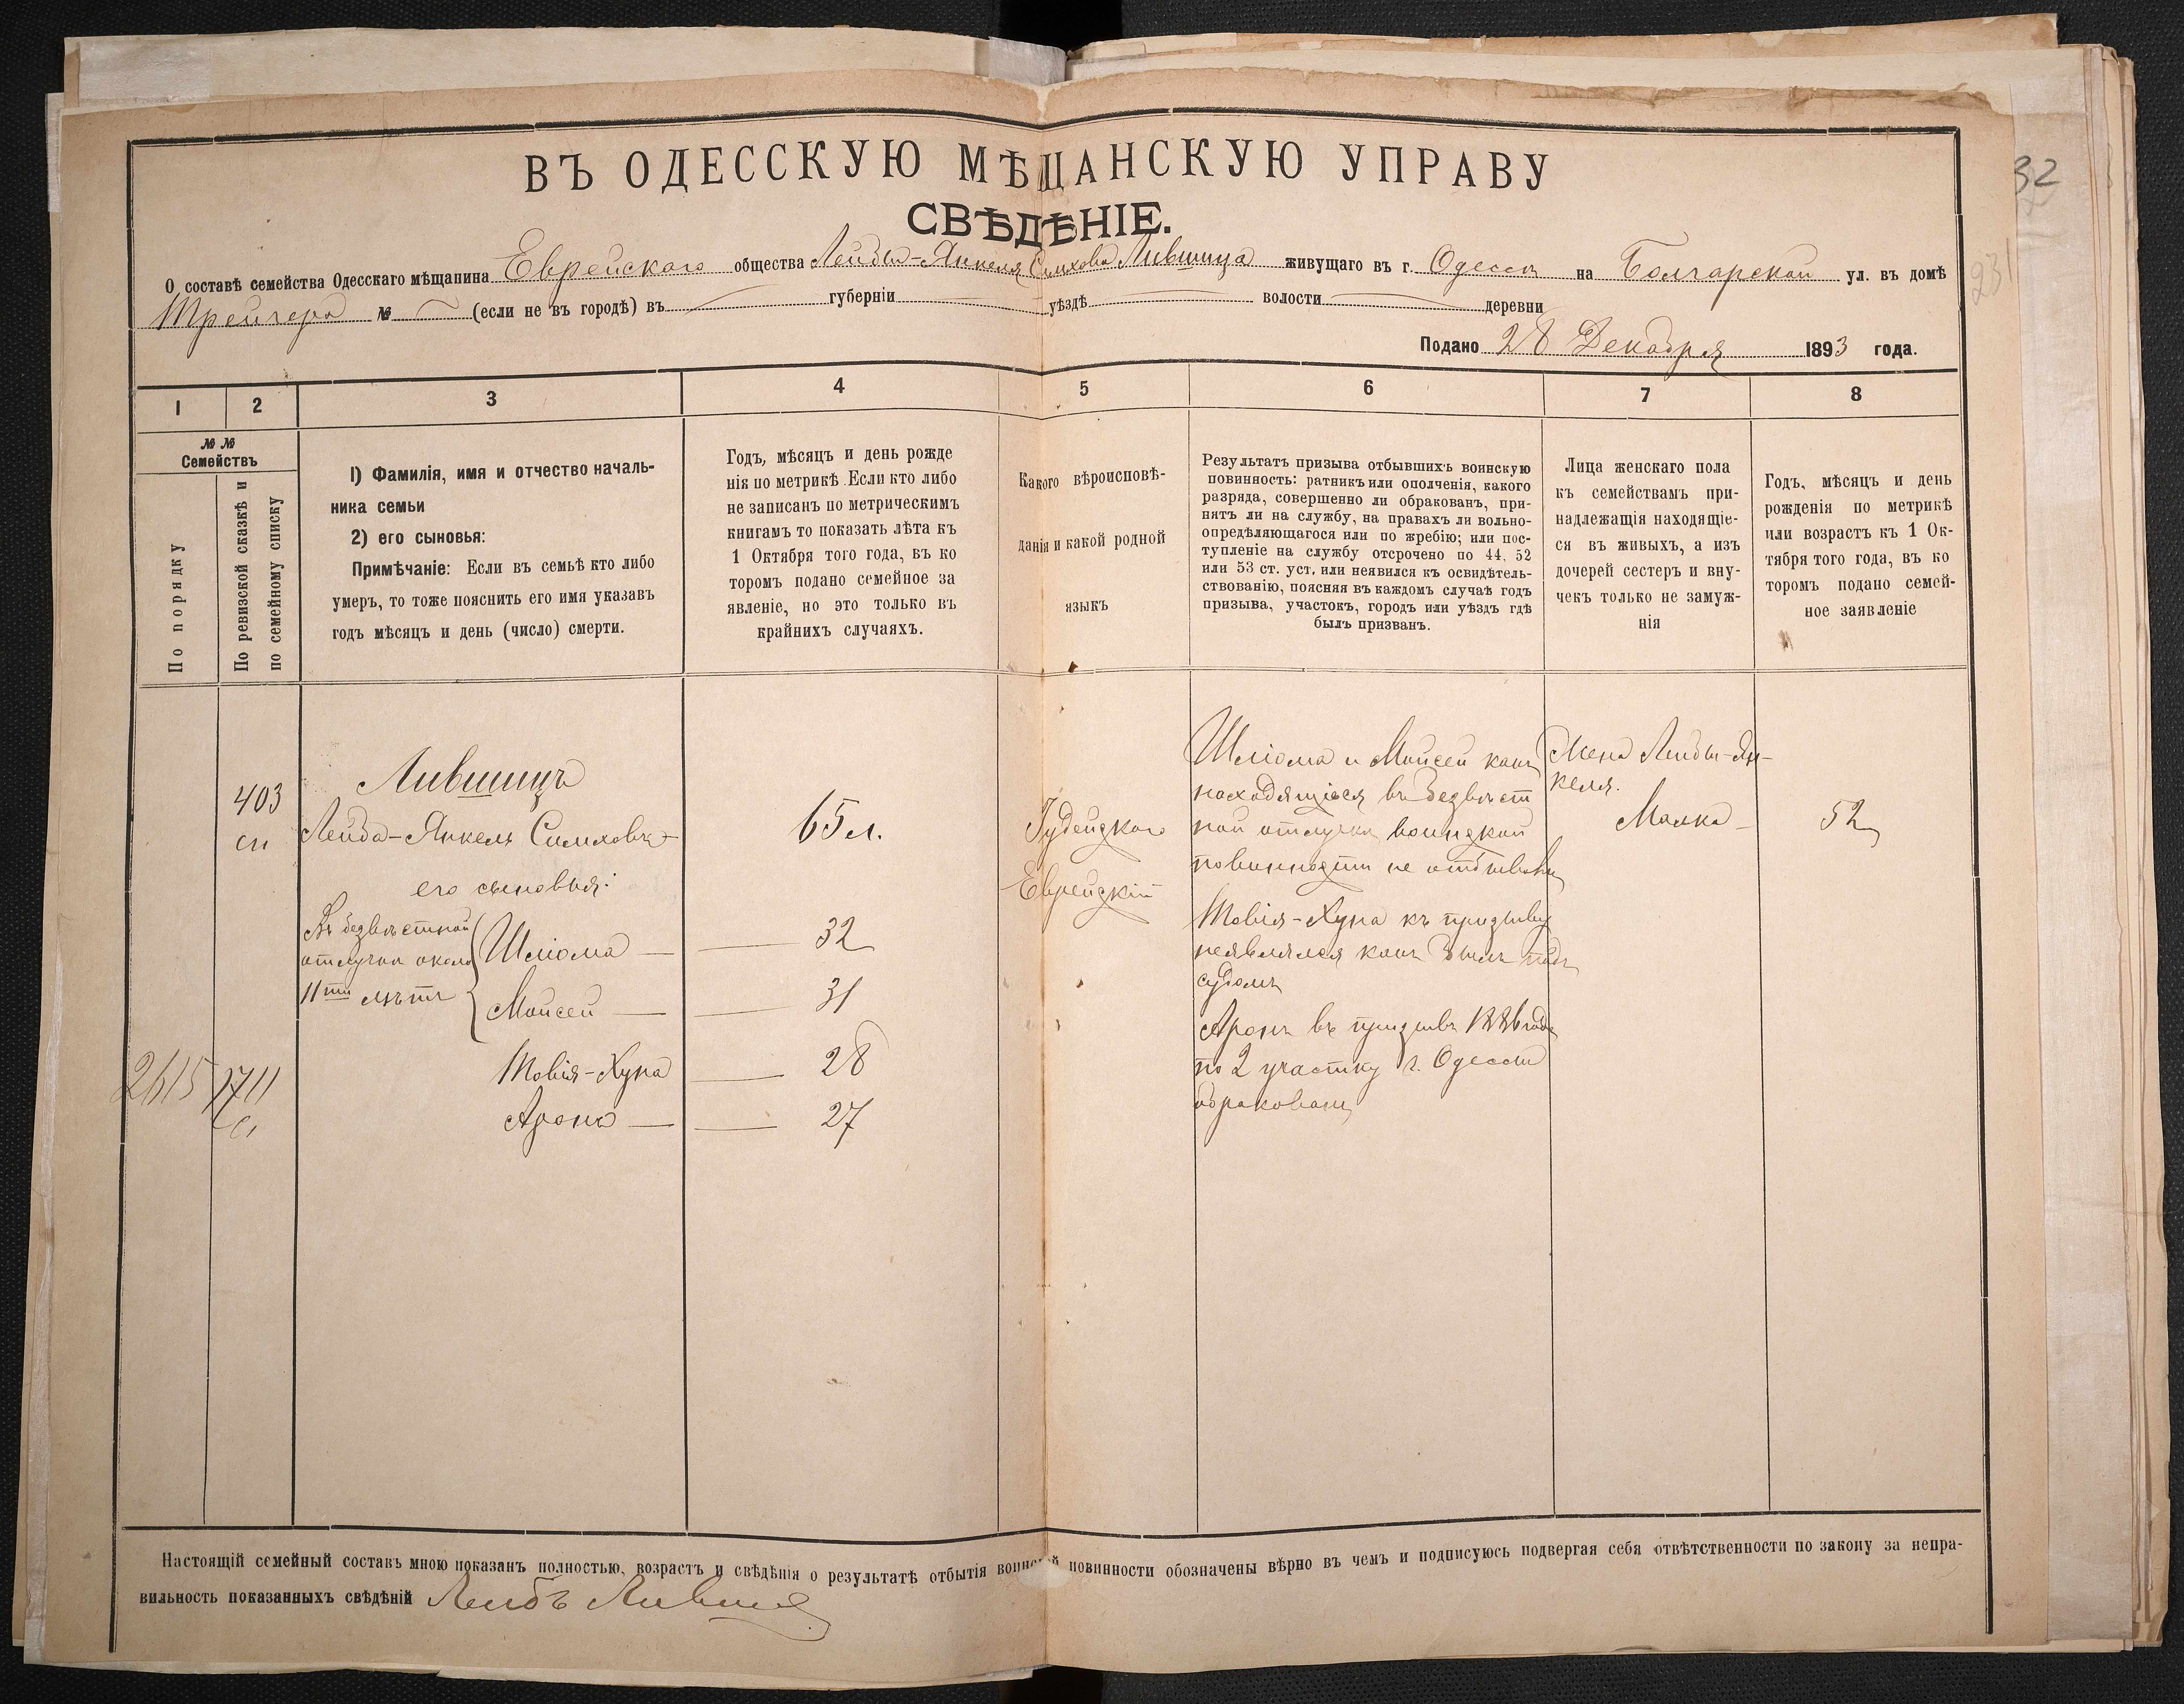 ВЪ ОДЕССКУЮ МѢЩАНСКУЮ УПРАВУ
СВѢДѢНІЕ.
О составѣ семейства Одесскаго мѣщанина Еврейскаго общества Лейбы-Янкеля Симхова Лившица живущаго въ г. Одессѣ на Болгарской ул. въ домѣ
Трейгера № (если не въ городѣ) въ губерніи уѣздѣ волости деревни
Подано 28 Декабря 1893 года.
1 2 3 4 5 6 7 8
№ №
Семействъ
По порядку
По ревизской сказкѣ и
по семейному списку
1) Фамилія, имя и отчество началь-
ника семьи
2) его сыновья:
Примѣчаніе: Если въ семьѣ кто либо
умеръ, то тоже пояснить его имя указавъ
годъ мѣсяцъ и день (число) смерти.
Годъ, мѣсяцъ и день рожде
нія по метрикѣ. Если кто либо
не записанъ по метрическимъ
книгамъ то показать лѣта къ
1 Октября того года, въ ко
торомъ подано семейное за
явленіе, но это только въ
крайнихъ случаяхъ.
Какого вѣроисповѣ-
данія и какой родной
языкъ
Результатъ призыва отбывшихъ воинскую
повинность: ратникъ или ополченія, какого
разряда, совершенно ли обракованъ, при-
нятъ ли на службу, на правахъ ли вольно-
опредѣляющагося или по жребію; или пос-
тупленіе на службу отсрочено по 44, 52
или 53 ст. уст. или неявился къ освидѣтель-
ствованію, поясняя въ каждомъ случаѣ годъ
призыва, участокъ, городъ или уѣздъ гдѣ
былъ призванъ.
Лица женскаго пола
къ семействамъ при-
надлежащія находящіе-
ся въ живыхъ, а изъ
дочерей сестеръ и вну-
чекъ только не замуж-
нія
Годъ, мѣсяцъ и день
рожденія по метрикѣ
или возрастъ къ 1 Ок-
тября того года, въ ко
торомъ подано семей-
ное заявленіе
403
сп
Лившицъ
Лейба-Янкель Симховъ
его сыновья:
Въ безвѣстной
отлучкѣ около
11ти лѣтъ
Шлiома
Мойсей
2615 1711
Товія-Хуна
Аронъ
65 л.
32
31
28
27
Іудейскаго
Еврейскій
Шлiома и Мойсей какъ
находящіеся въ безвѣст
ной отлучкѣ воинской
повинности не отбывали
Товія-Хуна къ призыву
неявлялся какъ былъ подъ
судомъ
Аронъ въ призывъ 1886 года
по 2 участку г. Одессы
обракованъ
Жена Лейбы-Ян-
келя.
Малка
52
Настоящій семейный составъ мною показанъ полностью, возрастъ и свѣдѣнія о результатѣ отбытія воинской повинности обозначены вѣрно въ чемъ и подписуюсь подвергая себя отвѣтственности по закону за непра-
вильность показанныхъ свѣдѣній Лейбъ Лившиц
32
231